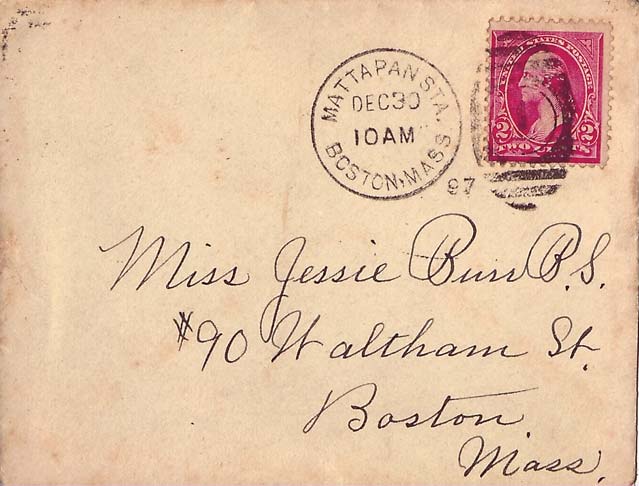 MATTAPAN STA.
DEC 30
10 AM
BOSTON, MASS
97
UNITED STATES POSTAGE
2 2
TWO
Miss Jessie Burr B.S.
#90 Waltham St.
Boston
Mass.